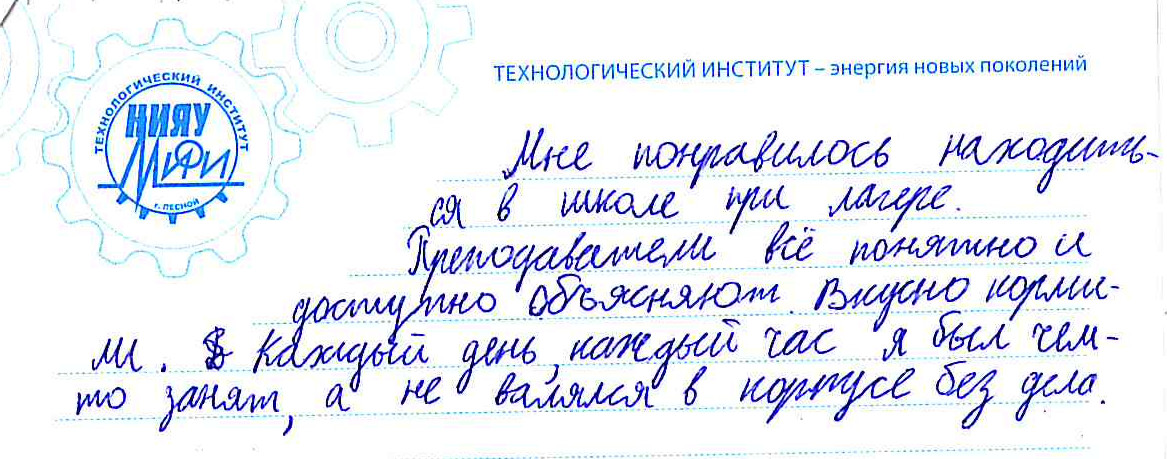 ТЕХНОЛОГИЧЕСКИЙ ИНСТИТУТ – энергия новых поколений
ТЕХНОЛОГИЧЕСКИЙ ИНСТИТУТ
НИЯУ
МИФИ
г. ЛЕСНОЙ
Мне понравилось находить-
ся в школе при лагере.
Преподаватели всё понятно и
доступно объясняют. Вкусно корми-
ли. Каждый день, каждый час я был чем-
то занят, а не валялся в корпусе без дела.